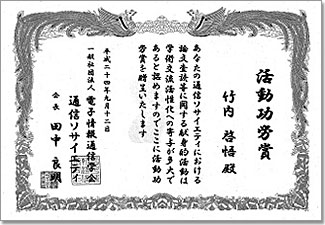 活動功労賞
竹内 啓悟 殿
あなたの通信ソサイエティにおける
論文査読等に関する献身的活動は
学術交流活性化への寄与が多大で
あると認めますのでここに活動功
労賞を贈呈いたします
平成二十四年九月十二日
一般社団法人 電子情報通信学会
通信ソサイエティ
会長 田中 良明